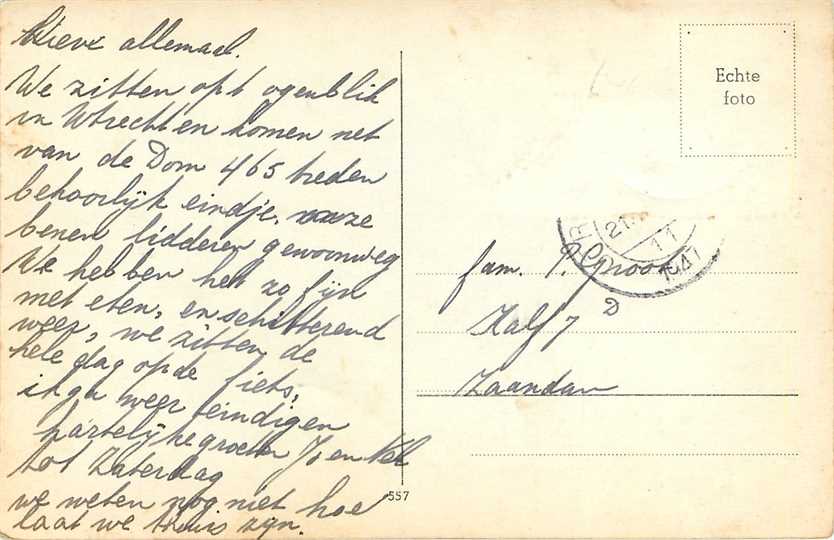 Lieve allemaal.
We zitten op't ogenblik
in Utrecht en komen net
van de Dom 465 treden
behoorlijk eindje. onze
benen bidderen gewoonweg
We hebben het zo fijn
met eten, en schitterend
weer, we zitten de
hele dag op de fiets,
ik ga weer eindigen
hartelijke groeten Jo en
tot Zaterdag
we weten nog niet hoe
laat we thuis zijn.
557
Echte
foto
21
11
1947
fam. P. Groot
Half 7 D
Zaandam